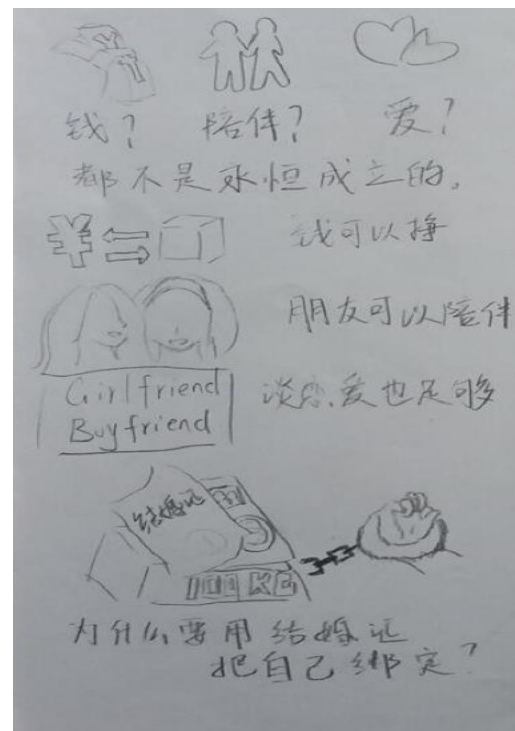 钱? 陪伴? 爱?
都不是永恒成立的。
¥ 钱可以挣
朋友可以陪伴
Girlfriend
Buyfriend
谈恋爱也足够
结婚证
100KG
为什么要用结婚证
把自己绑定?